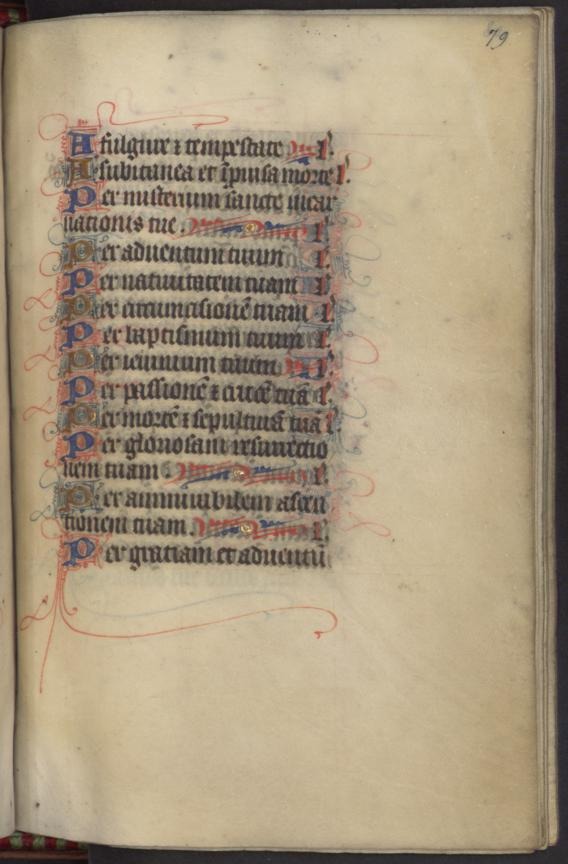 79
A fulgure ⁊ tempestate l.
A subitanea et īpiuisa morte l.
Per misterium sancte incar
nationis tue. l.
Per aduentum tuum l.
Per natiuitatem tuam l.
Per circumcisionē tuam l.
Per baptismum tuum l.
Per ieiunium tuum l.
Per passionē ⁊ crucē tuā l.
Per mortē ⁊ sepulturā tuā l.
Per gloriosam resurrectio
nem tuam. l.
Per ammirabilem ascen
tionem tuam. l.
Per gratiam et aduentū